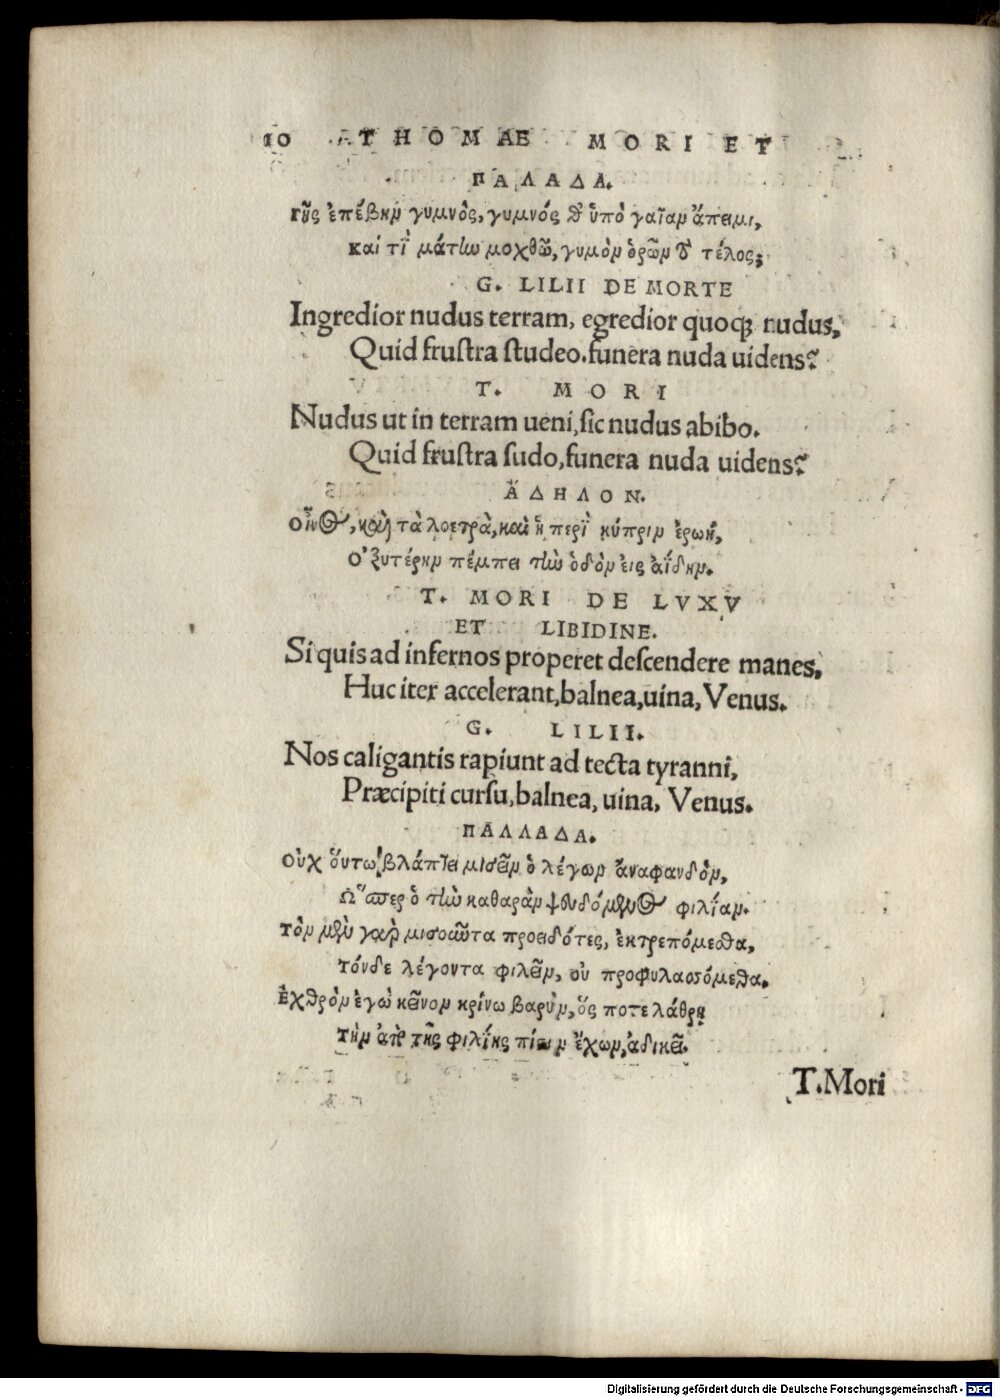 10 THOMAE MORI ET
ΠΑΛΑΔΑ.
Γῆς ἐπέβην γυμνὸς, γυμνός θ' ὑπὸ γαῖαν ἄπειμι,
καί τί μάτην μοχθῶ, γυμὸν ὁρῶν τὸ τέλος;
G. LILII DE MORTE
Ingredior nudus terram, egredior quoqꝫ nudus,
Quid frustra studeo. funera nuda uidens?
T. MORI
Nudus ut in terram ueni, sic nudus abibo.
Quid frustra sudo, funera nuda uidens?
ἌΔΗΛΟΝ.
Οἶνος, καὶ τὰ λοετρὰ, καὶ ἡ περὶ κύπριν ἐρωή,
Ὀξυτέρην πέμπει τὴν ὁδὸν εἰς ἀΐδην.
T. MORI DE LVXV
ET LIBIDINE.
Si quis ad infernos properet descendere manes,
Huc iter accelerant, balnea, uina, Venus.
G. LILII.
Nos caligantis rapiunt ad tecta tyranni,
Præcipiti cursu, balnea, uina, Venus.
ΠΑΛΛΑΔΑ.
Οὐχ οὕτω βλάπτει μισεῖν ὁ λέγων ἀναφανδὸν,
Ὥσπερ ὁ τὴν καθαρὰν ψευδόμενος φιλίαν.
Τὸν μὲν γὰρ μισοῦντα προειδότες, ἐκτρεπόμεσθα,
τόνδε λέγοντα φιλεῖν, οὐ προφυλασσόμεθα.
Ἐχθρὸν ἐγὼ κεῖνον κρίνω βαρὺν, ὅς ποτε λάθρῃ
τὴν ἀπὸ τῆς φιλίης πίστιν ἔχων, ἀδικεῖ.
T. Mori
Digitalisierung gefördert durch die Deutsche Forschungsgemeinschaft - DFG